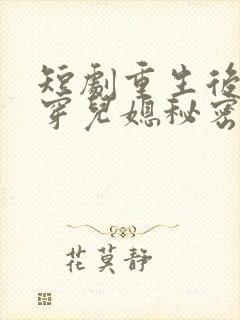 短劇重生後
穿兒媳秘密
花莫靜